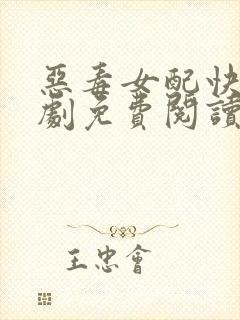 惡毒女配快
劇免費閱讀
王忠會